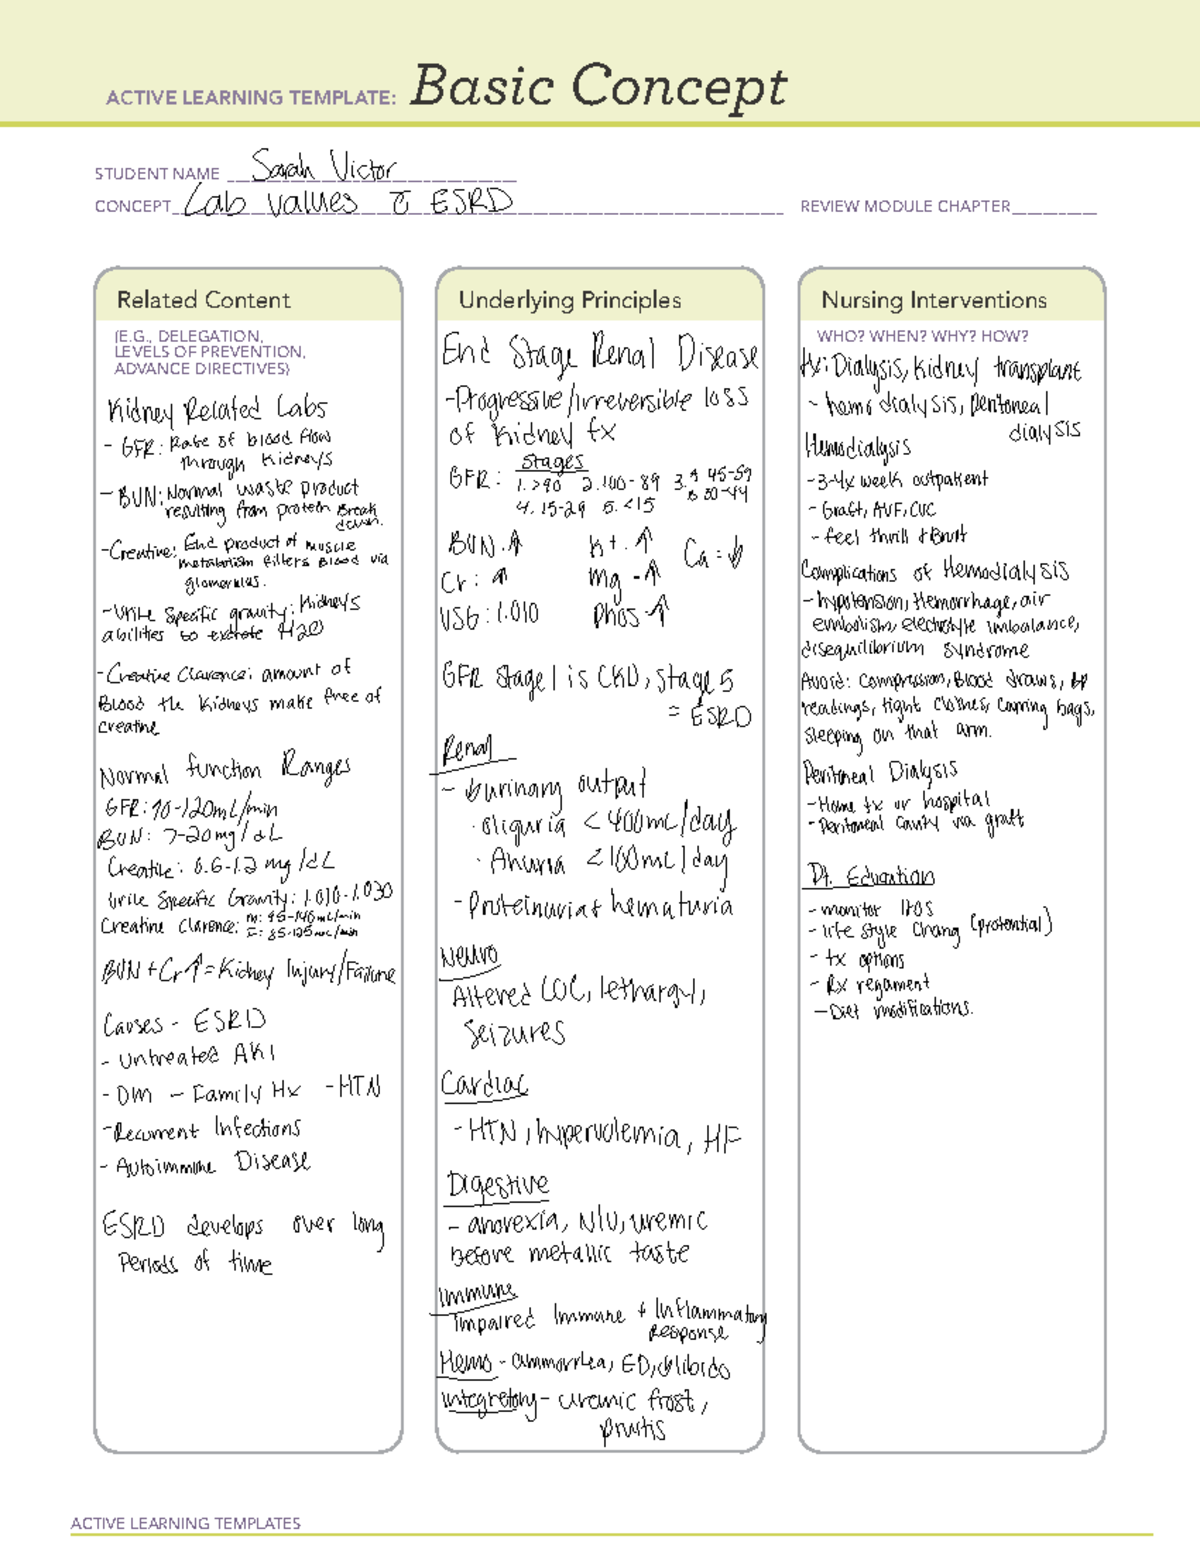 ACTIVE LEARNING TEMPLATE: Basic Concept
STUDENT NAME Sarah Victor
CONCEPT Lab values c̄ ESRD
REVIEW MODULE CHAPTER
Related Content
(E.G., DELEGATION,
LEVELS OF PREVENTION,
ADVANCE DIRECTIVES)
Kidney Related Labs
- GFR: Rate of blood flow
through kidneys
- BUN: Normal waste product
resulting from protein Break
down.
- Creatine: End product of muscle
metabolism filters Blood via
glomerulus.
- Urine Specific gravity: Kidneys
abilities to excrete H2O
- Creatine Clarence: amount of
Blood the kidneys make free of
creatine
Normal function Ranges
GFR: 90-120mL/min
BUN: 7-20mg/dL
Creatine: 0.6-1.2 mg/dL
Urine Specific Gravity: 1.010-1.030
Creatine Clarence: m: 95-140mL/min
F: 85-125mL/min
BUN + Cr ↑ = Kidney Injury/Failure
Causes - ESRD
- untreated AKI
- DM - Family Hx - HTN
- Recurrent Infections
- Autoimmune Disease
ESRD develops over long
Periods of time
Underlying Principles
End Stage Renal Disease
- Progressive/irreversible loss
of Kidney fx
Stages
GFR: 1. >90 2. 100-89 3. A 45-59
B 30-44
4. 15-29 5. <15
BUN: ↑ K+: ↑ Ca = ↓
Cr: ↑ Mg - ↑
USG: 1.010 Phos - ↑
GFR Stage 1 is CKD, Stage 5
= ESRD
Renal
- ↓ urinary output
· oliguria < 400mL/day
· Anuria < 100mL/day
- Proteinuria + hematuria
Neuro
Altered LOC, lethargy,
Seizures
Cardiac
- HTN, hypervolemia, HF
Digestive
- anorexia, N/V, uremic
before metallic taste
Immune
Impaired Immune + Inflammatory
Response
Hemo - ammorrhea, ED, ↓libido
Integretory - uremic frost,
pruitis
Nursing Interventions
WHO? WHEN? WHY? HOW?
Tx: Dialysis, kidney transplant
- hemodialysis, peritoneal
dialysis
Hemodialysis
- 3-4x week outpatient
- Graft, AVF, CVC
- feel thrill + Bruit
Complications of Hemodialysis
- hypotension, Hemorrhage, air
embolism, electrolyte imbalance,
disequilibrium syndrome
Avoid: Compression, Blood draws, BP
readings, tight clothes, carring bags,
sleeping on that arm.
Peritoneal Dialysis
- Home tx or hospital
- Peritoneal Cavity via graft
Pt. Education
- monitor I+OS
- life style chang (protential)
- tx options
- Rx regament
- Diet modifications.
ACTIVE LEARNING TEMPLATES